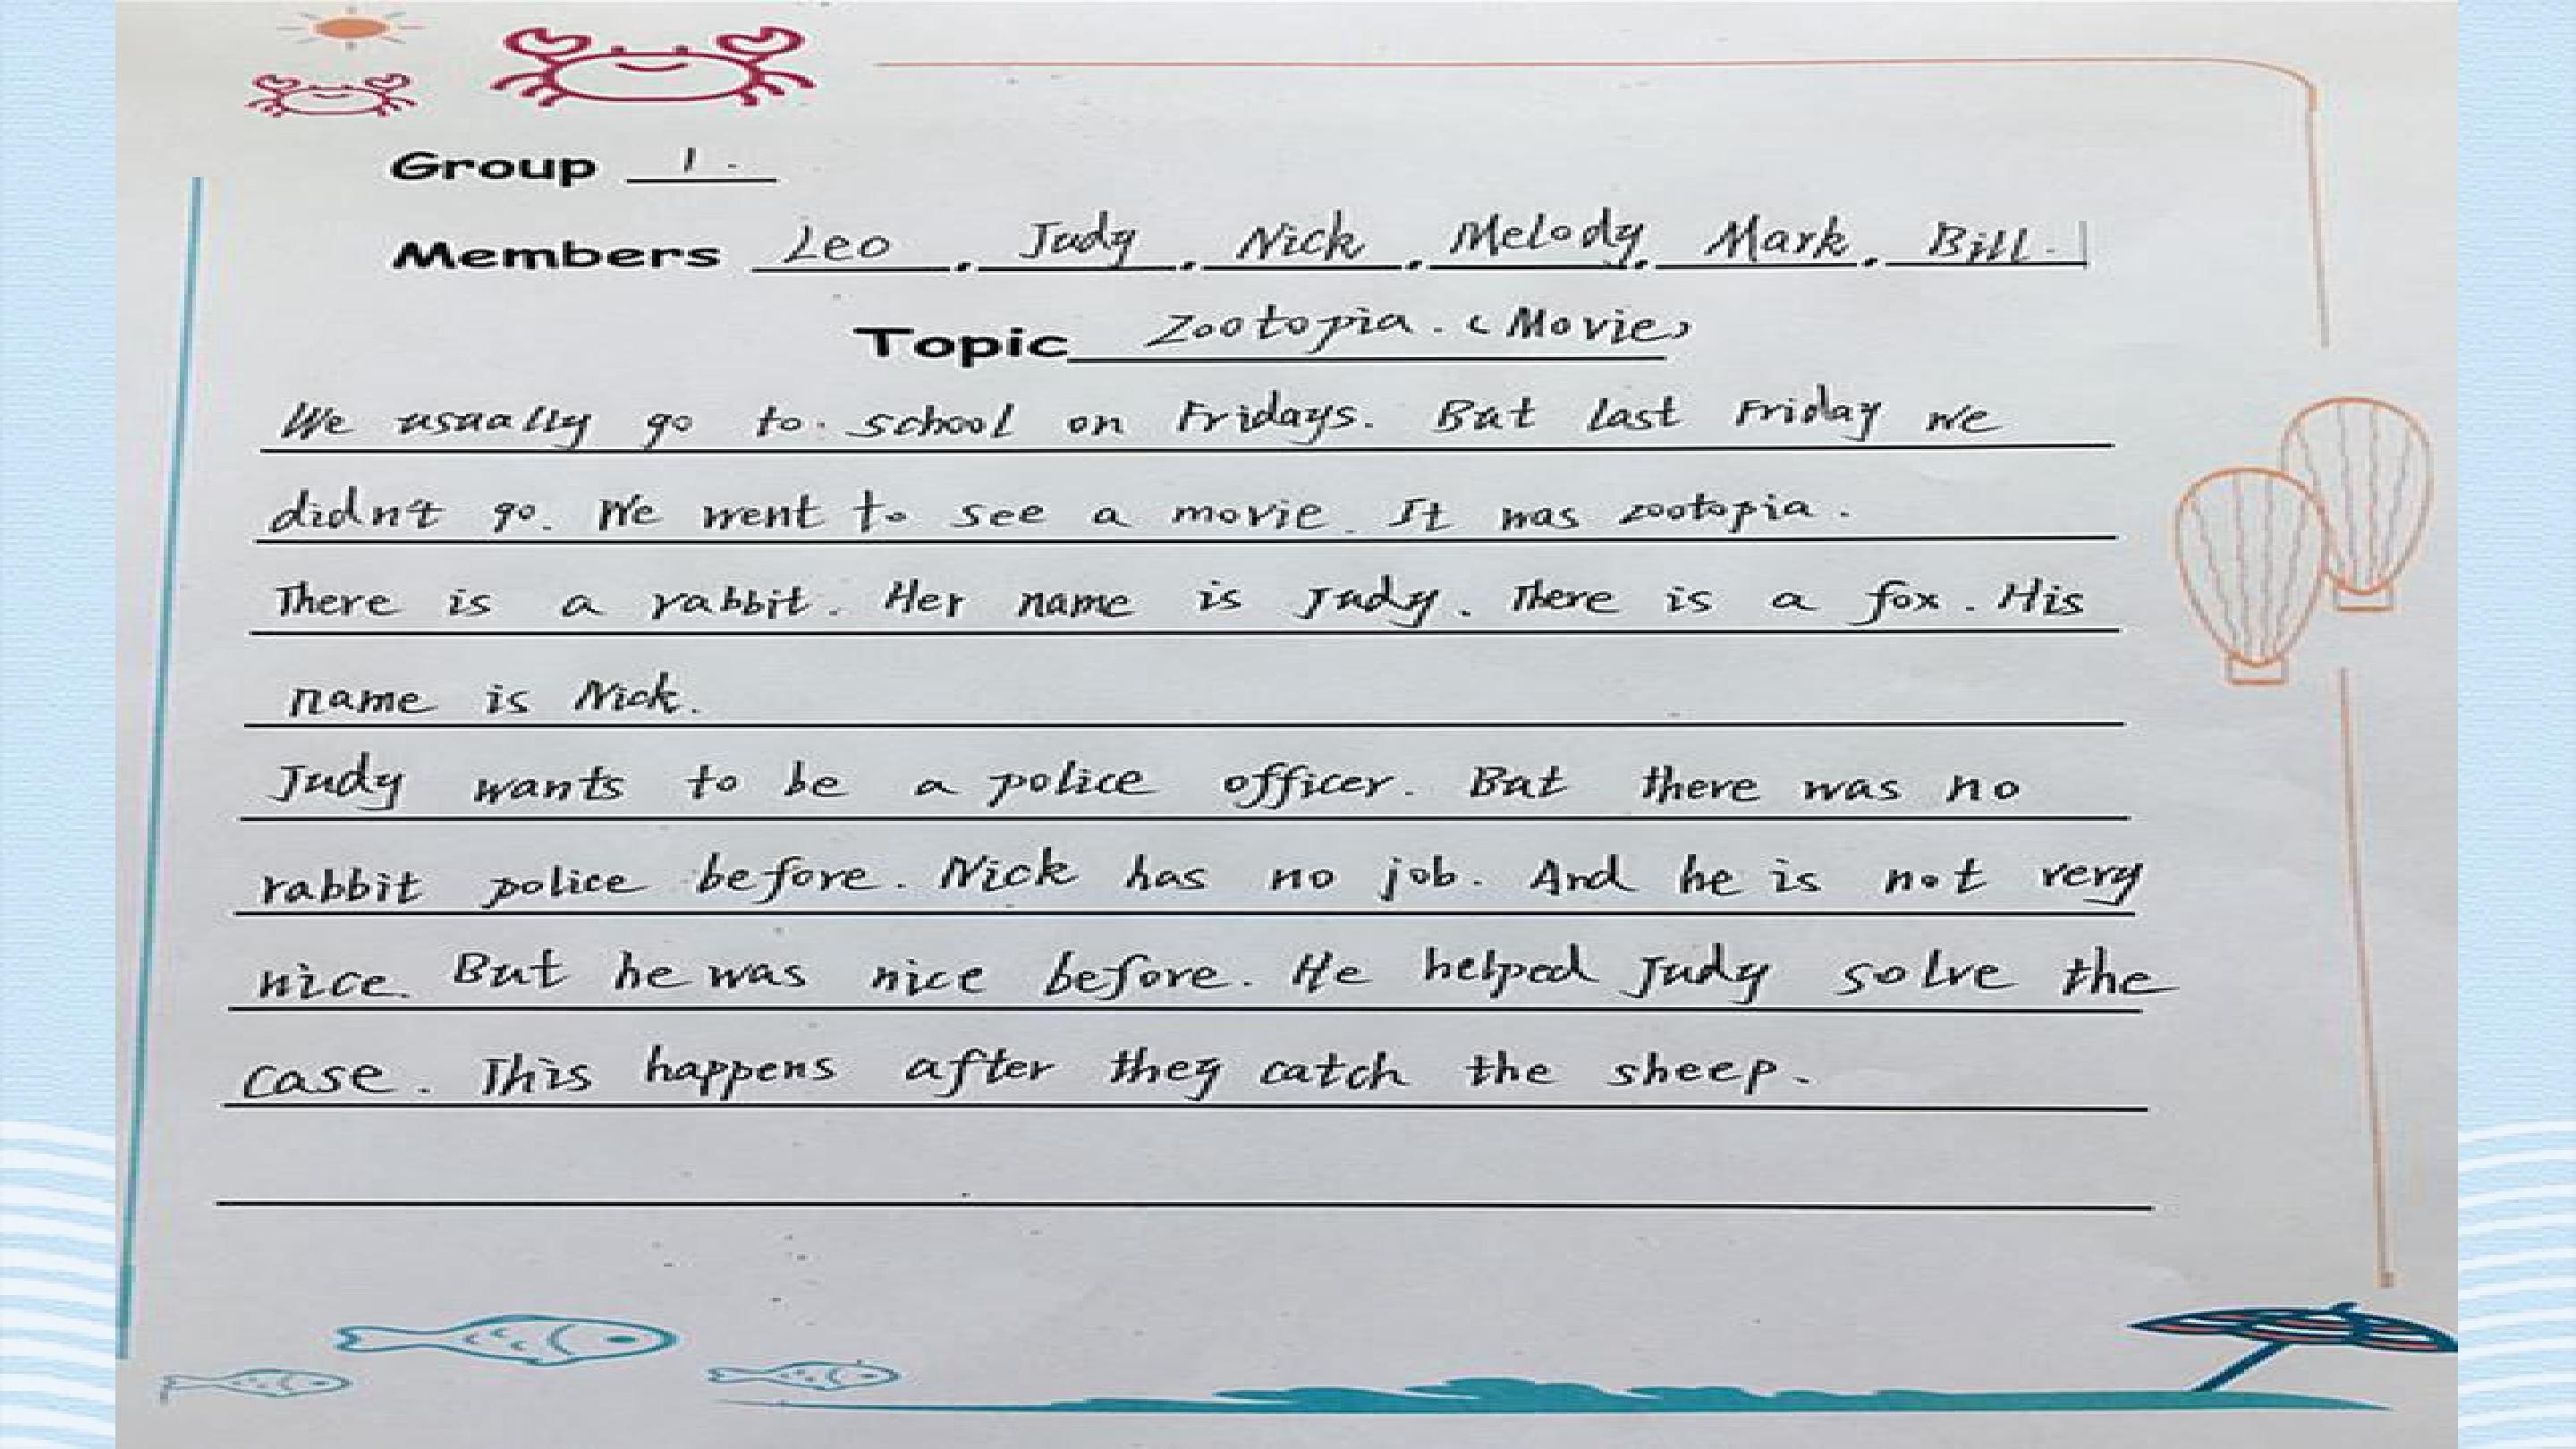 Group 1.
Members Leo, Judy, Nick, Melody, Mark, Bill.
Topic Zootopia. (Movie)
We usually go to school on Fridays. But last Friday we
didn't go. We went to see a movie. It was zootopia.
There is a rabbit. Her name is Judy. There is a fox. His
name is Nick.
Judy wants to be a police officer. But there was no
rabbit police before. Nick has no job. And he is not very
nice. But he was nice before. He helped Judy solve the
case. This happens after they catch the sheep.